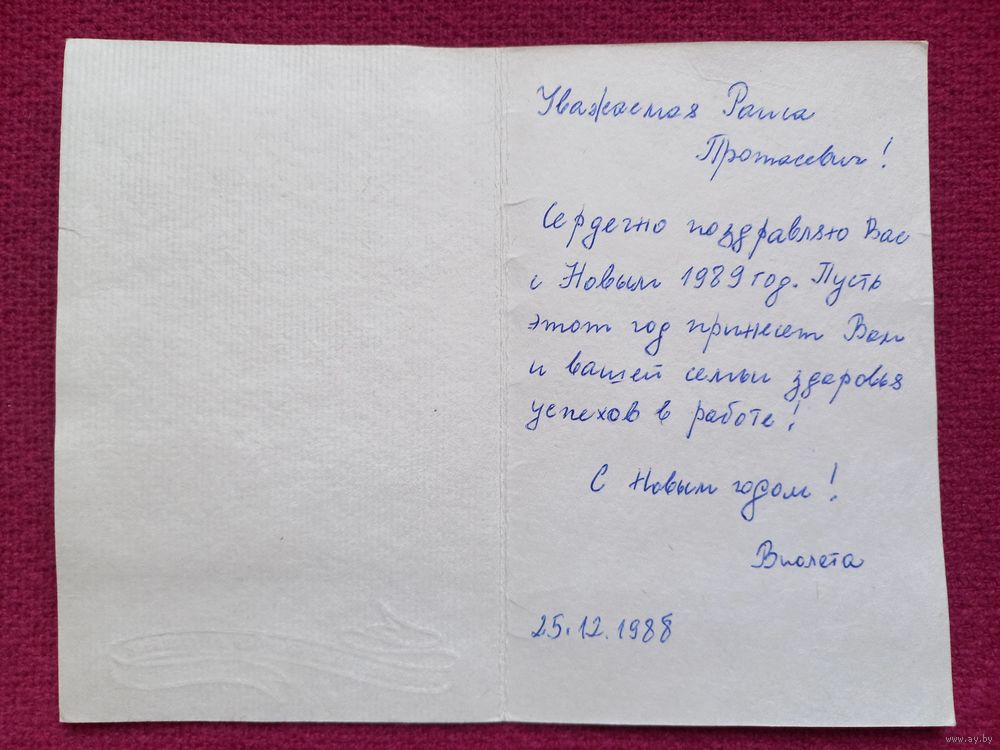 Уважаемая Раиса
Протасевич!
Сердечно поздравляю Вас
с Новым 1989 год. Пусть
этот год принесет Вам
и вашей семьи здоровья
успехов в работе!
С Новым годом!
Виолета
25.12.1988
www.ay.by